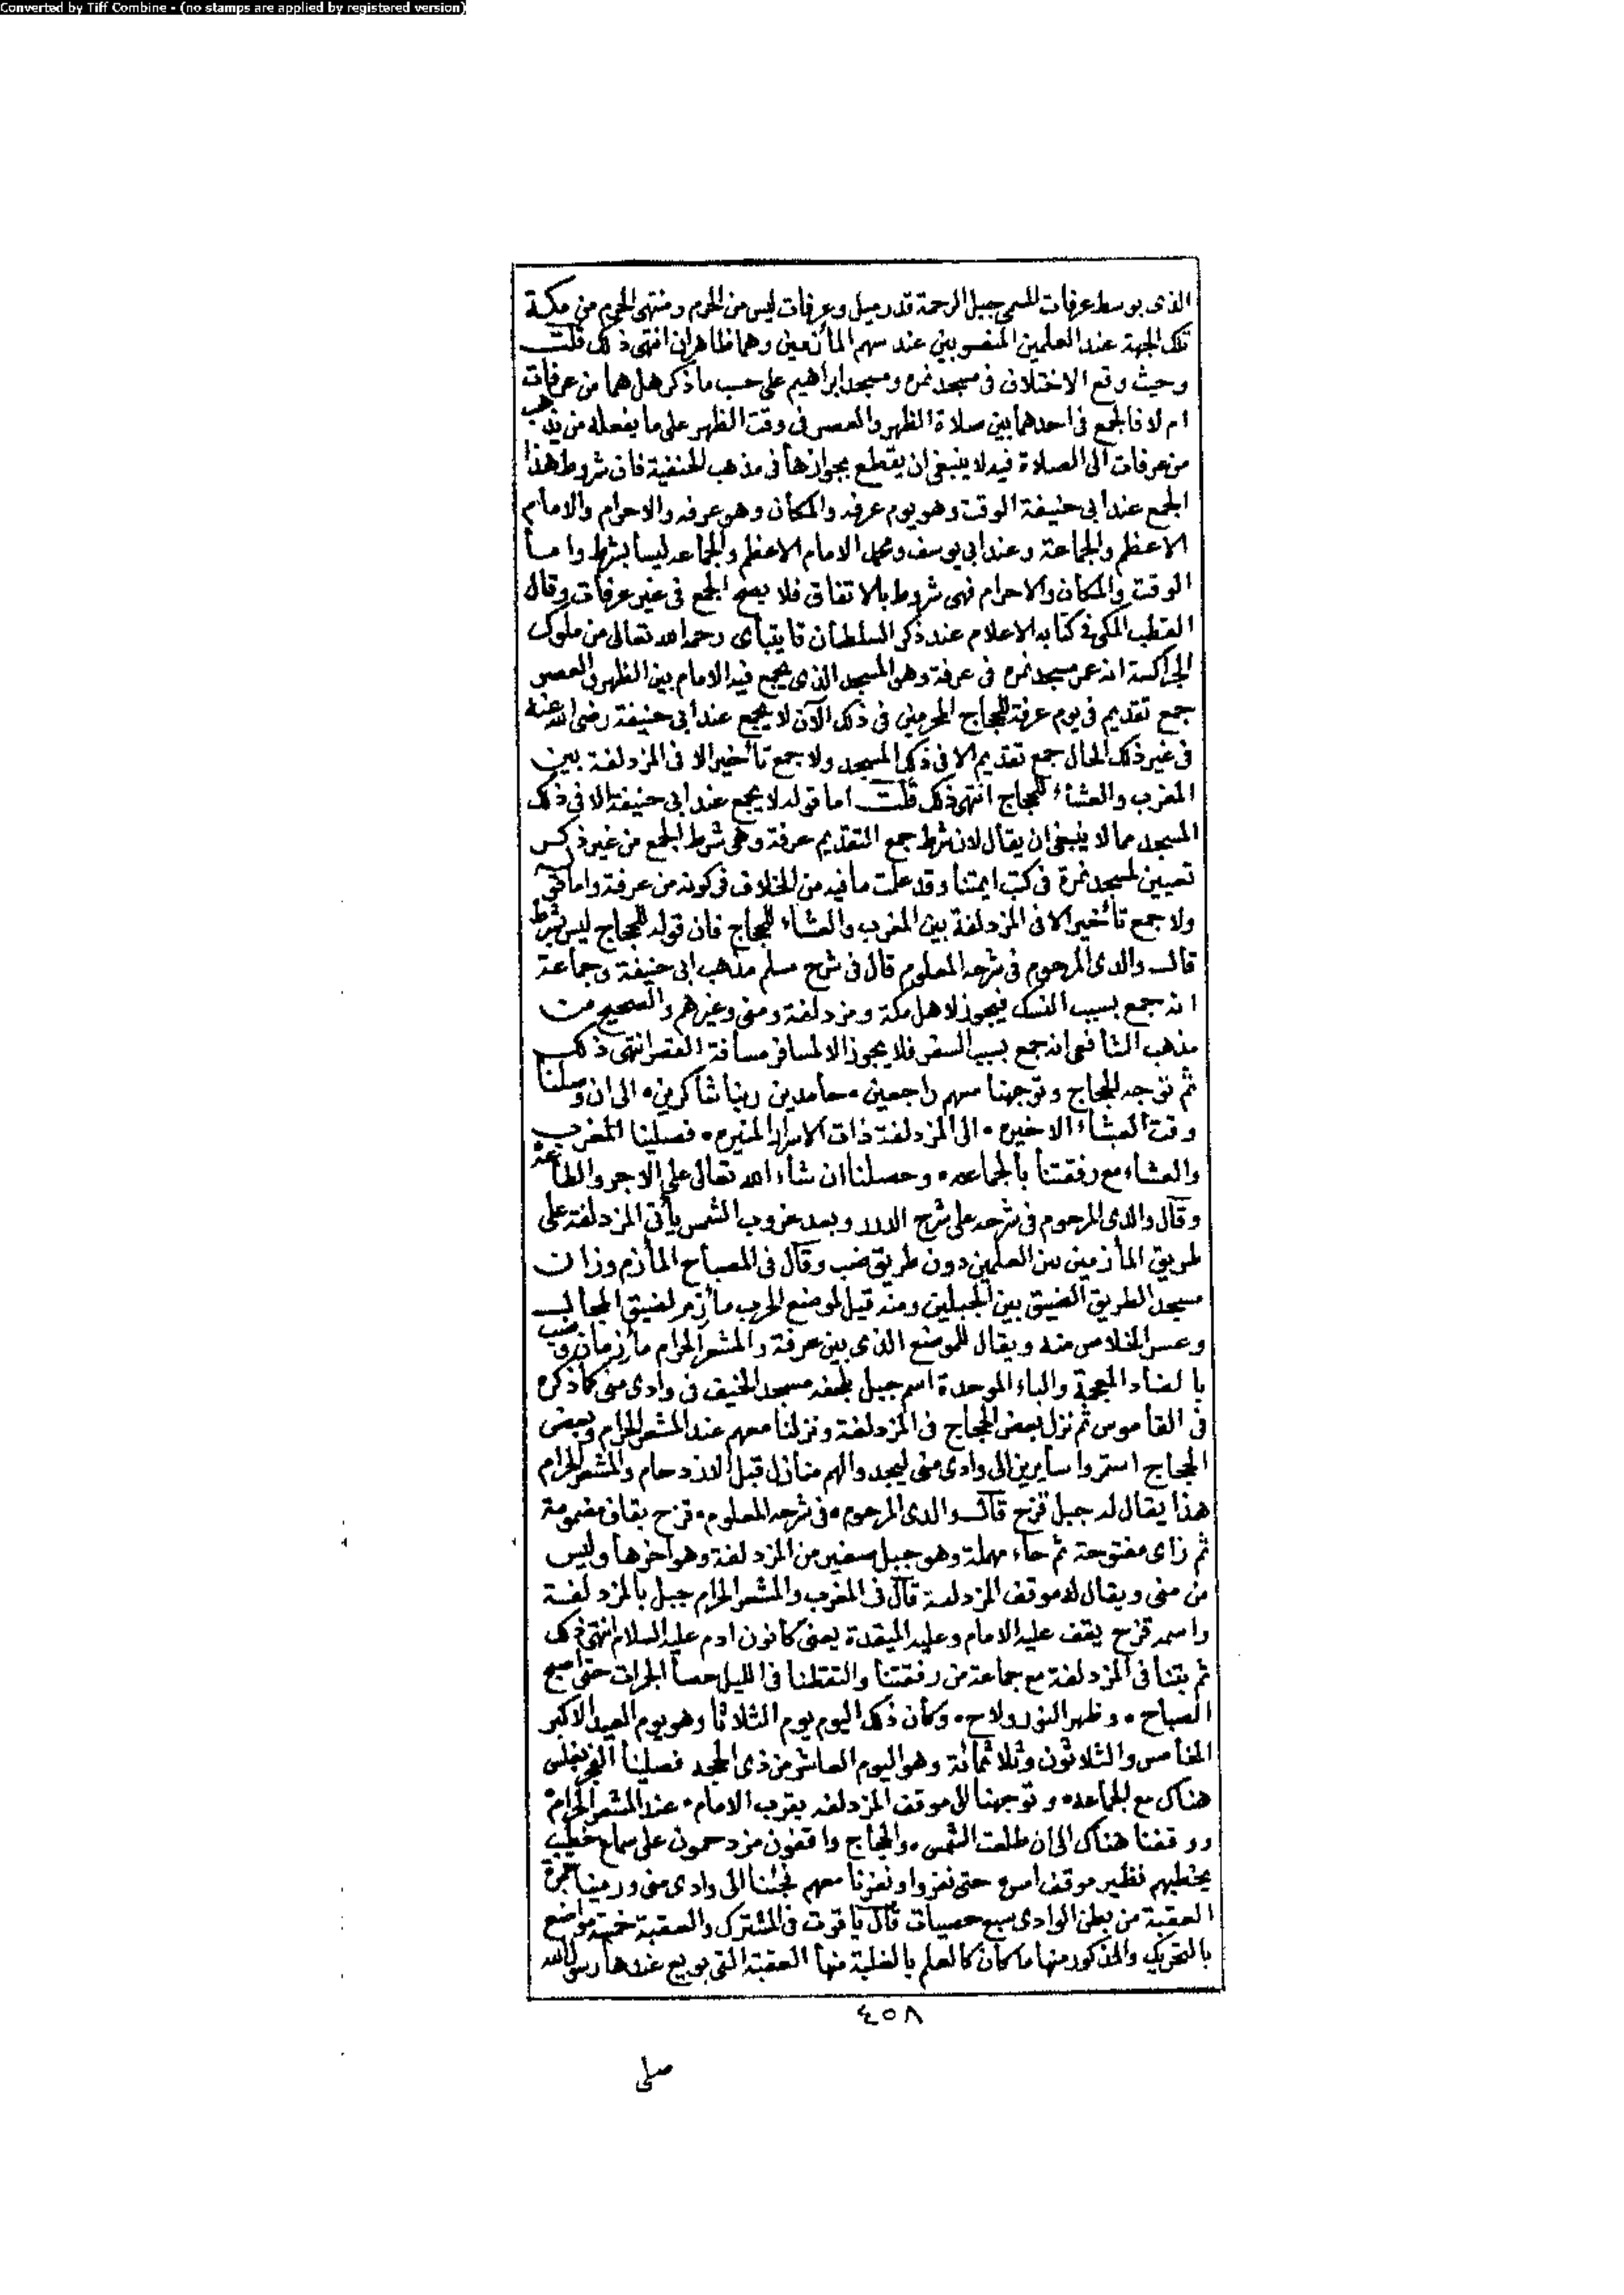 Converted by Tiff Combine - (no stamps are applied by registered version)
الذى بوسط عرفات المسمى جبل الرحمة قدر ميل وعرفات ليس من الحرم ومنتهى الحرم من مكة
تلك الجهة عند العلمين المنصوبين عند منهم المأزمين وهما ظاهران انتهى ذلك قلت
وحيث وقع الاختلاف فى مسجد نمره ومسجد ابراهيم على حسب ما ذكر هل هما من عرفات
ام لا فالجمع فى احدهما بين صلاة الظهر والعصر فى وقت الظهر على ما يفعله من يذهب
من عرفات الى الصلاة فيه لا ينبغى ان يقطع بجوازها فى مذهب الحنفية فان شروط هذا
الجمع عند ابى حنيفة الوقت وهو يوم عرفه والمكان وهو عرفه والاحرام والامام
الاعظم والجماعة وعند ابى يوسف ومحمد الامام الاعظم والجماعه ليسا بشرط واما
الوقت والمكان والاحرام فهى شروط بالاتفاق فلا يصح الجمع فى غير عرفات وقال
القطب المكى فى كتابه الاعلام عند ذكر السلطان قايتباى رحمه الله تعالى من ملوك
الجراكسة انه عمر مسجد نمره فى عرفة وهو المسجد الذى يجمع فيه الامام بين الظهر والعصر
جمع تقديم فى يوم عرفة للحجاج المحرمين فى ذلك الآن لا يجمع عند ابى حنيفة رضى الله عنه
فى غير ذلك الحال جمع تقديم الا فى ذلك المسجد ولا جمع تأخير الا فى المزدلفة بين
المغرب والعشاء للحجاج انتهى ذلك قلت اما قوله لا يجمع عند ابى حنيفة الا فى ذلك
المسجد مما لا ينبغى ان يقال لان شرط جمع التقديم عرفة وهى شرط الجمع من غير ذكر
تعيين لمسجد نمرة فى كتب ايمتنا وقد علمت ما فيه من الخلاف فى كونه من عرفة واما
ولا جمع تأخير الا فى المزدلفة بين المغرب والعشاء للحجاج فان قوله للحجاج ليس بشرط
قال والدى المرحوم فى شرحه المعلوم قال فى شرح مسلم مذهب ابى حنيفة وجماعة
انه جمع بسبب النسك فيجوز لاهل مكة ومزدلفة ومنى وغيرهم والصحيح من
مذهب الشافعى انه جمع بسبب السفر فلا يجوز الا لمسافر مسافة القصر انتهى ذلك
ثم توجه الحجاج وتوجهنا معهم راجعين • حامدين ربنا شاكرين • الى ان وصلنا
وقت العشاء الاخيره • الى المزدلفة ذات الاسرار المنيره • فصلينا المغرب
والعشاء مع رفقتنا بالجماعه • وحصلنا ان شاء الله تعالى على الاجر والطاعة
وقال والدى المرحوم فى شرحه على شرح الدرر وبعد غروب الشمس يأتى المزدلفة على
طريق المأزمين بين العلمين دون طريق ضب وقال فى المصباح المأزم وزان
مسجد الطريق الضيق بين الجبلين ومنه قيل لموضع الحرب مأزم لضيق المجال
وعسر الخلاص منه ويقال للموضع الذى بين عرفة والمشعر الحرام مأزمان وضب
بالضاد المعجمة والباء الموحدة اسم جبل بلحفه مسجد الخيف فى وادى منى كما ذكره
فى القاموس ثم نزل بعض الحجاج فى المزدلفة ونزلنا معهم عند المشعر الحرام وبعض
الحجاج استمروا سايرين الى وادى منى ليجدوا لهم منازل قبل الازدحام والمشعر الحرام
هذا يقال له جبل قزح قال والدى المرحوم • فى شرحه المعلوم • قزح بقاف مضمومة
ثم زاى مفتوحة ثم حاء مهملة وهو جبل صغير من المزدلفة وهو آخرها وليس
من منى ويقال له موقف المزدلفة قال فى المغرب والمشعر الحرام جبل بالمزدلفة
واسمه قزح يقف عليه الامام وعليه الميقدة يعنى كانون ادم عليه السلام انتهى ذلك
ثم بتنا فى المزدلفة مع جماعة من رفقتنا والتقطنا فى الليل حصا الجمرات حتى اصبح
الصباح • وظهر النور ولاح • وكان ذلك اليوم يوم الثلاثا وهو يوم العيد الاكبر
الخامس والثلاثون وثلاثمائة وهو اليوم العاشر من ذى الحجه فصلينا الفجر بغلس
هناك مع الجماعه • وتوجهنا الى موقف المزدلفه بقرب الامام • عند المشعر الحرام
ووقفنا هناك الى ان طلعت الشمس • والحجاج واقفون مزدحمون على سماع خطيب
يخطبهم نظير موقف امس • حتى نفروا ونفرنا معهم فجئنا الى وادى منى ورمينا جمرة
العقبة من بطن الوادى سبع حصيات قال ياقوت فى المشترك والعقبة خمسة مواضع
بالتحريك والمذكور منها ما كان كالعلم بالغلبة منها العقبة التى بويع عندها رسول الله
٤٥٨
صلى